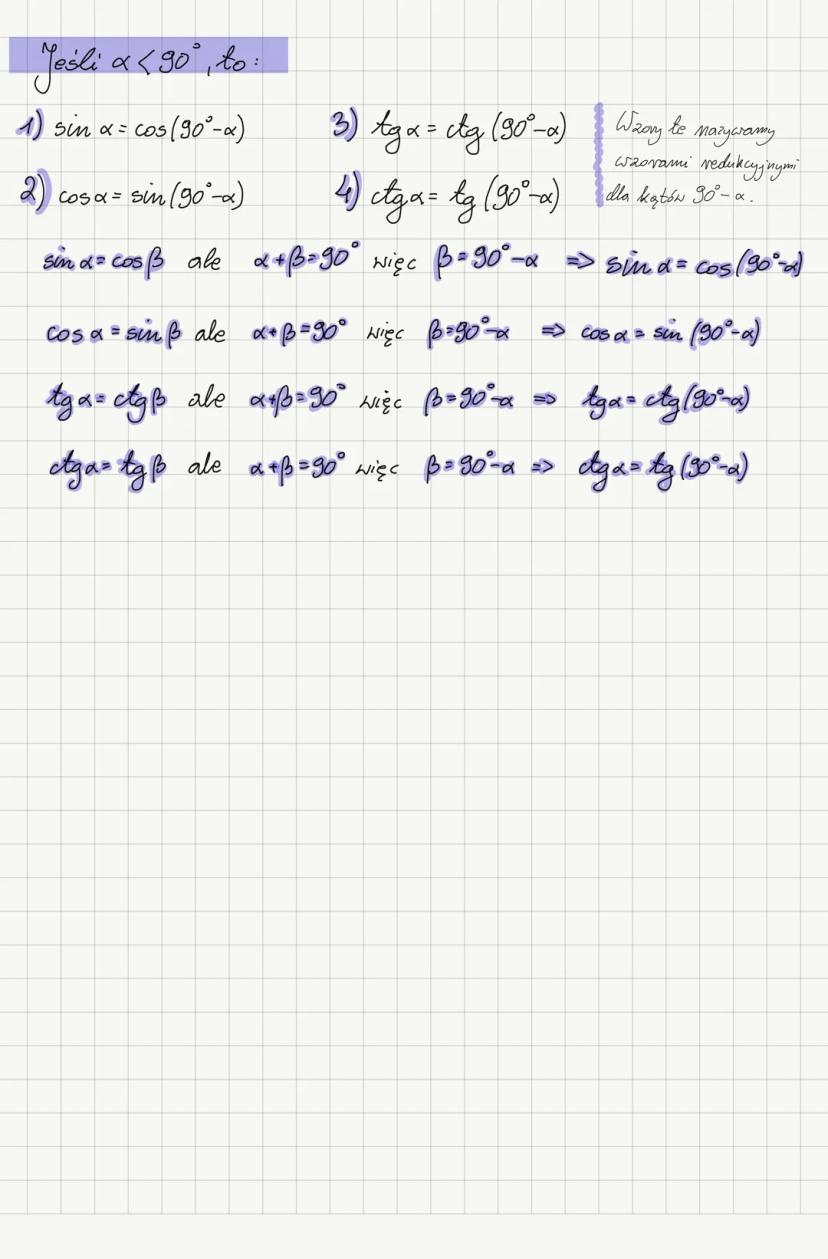 Jeśli α < 90°, to:
1) sin α = cos(90°-α)
2) cos α = sin(90°-α)
3) tg α = ctg (90°-α)
4) ctg α = tg (90°-α)
Wzory te nazywamy
wzorami redukcyjnymi
dla kątów 90° - α.
sin α = cos β ale α + β = 90° więc β = 90° - α => sin α = cos(90°-α)
cos α = sin β ale α + β = 90° więc β = 90° - α => cos α = sin (90°-α)
tg α = ctg β ale α + β = 90° więc β = 90° - α => tg α = ctg (90°-α)
ctg α = tg β ale α + β = 90° więc β = 90° - α => ctg α = tg (90°-α)